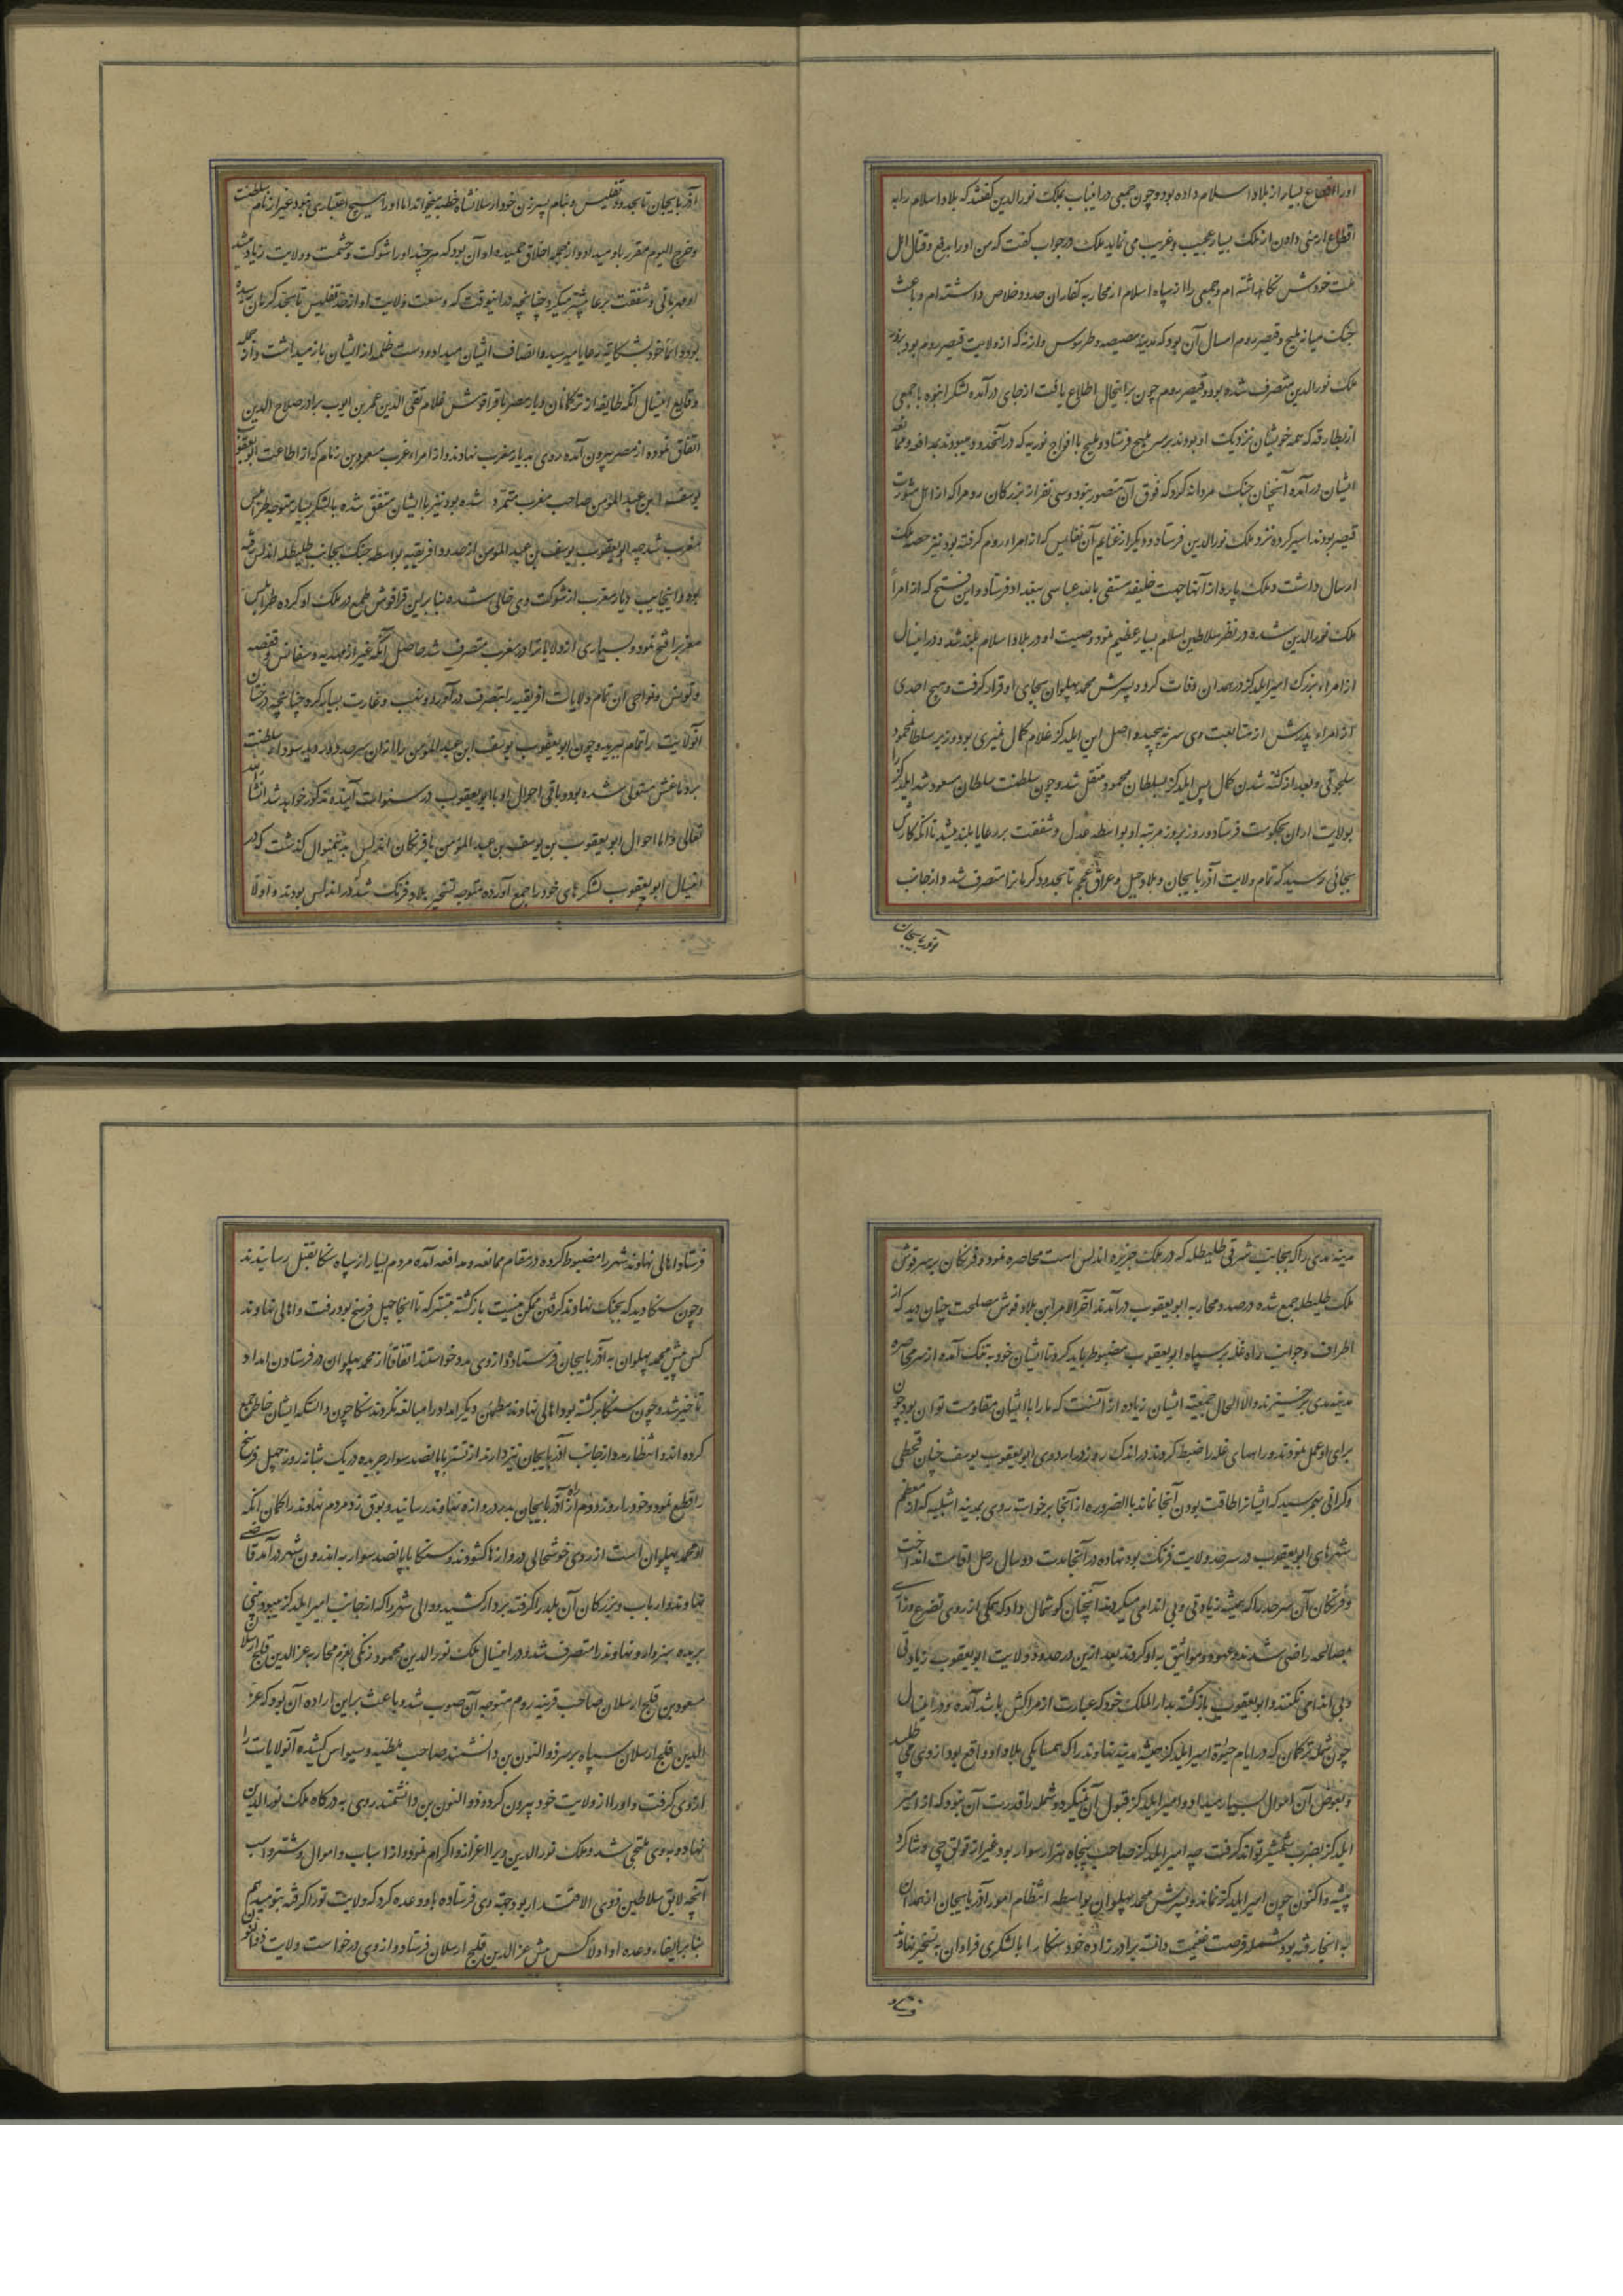 اورا اقطاع بسیار از بلاد اسلام داده بود و چون جمعی در اینباب بملک نورالدین گفتند که بلاد اسلام را به
اقطاع ارمنی دادن از ملک بسیار عجیب و غریب می نماید ملک در جواب گفت که من او را بدفع و قتال اهل
ملت خودش نگاهداشته ام و جمعی را از سپاه اسلام از محاربه کفار آن حدود خلاص داشته ام و باعث
جنگ میانه ملیح و قیصر روم امسال آن بود که مدینه مصیصه و طرسوس و ازنه که از ولایت قیصر روم بود بزور
ملک نورالدین متصرف شده بود و قیصر روم چون بر اینحال اطلاع یافت از جای درآمده لشکر انبوه با جمعی
از بطارقه که همه خویشان نزدیک او بودند بر سر ملیح فرستاد و ملیح با افواج نوریه که در آنحدود میبودند بمدافعه و ممانعه
ایشان درآمده آنچنان جنگ مردانه کرد که فوق آن متصور نبود و سی نفر از بزرگان روم را که از اهل مشورت
قیصر بودند اسیر کرده نزد ملک نورالدین فرستاد و دیگر از غنایم آن نفایس که از امراء روم گرفته بود نیز حصه ملک
ارسال داشت و ملک پاره از آنها جهت خلیفه مستضی بالله عباسی ببغداد فرستاد و این فتح که از امرأ
ملک نورالدین شده در نظر سلاطین اسلام بسیار عظیم نمود و صیت او در بلاد اسلام بلند شد و در اینسال
از امراء بزرگ امیر ایلدگز در همدان وفات کرد و پسرش محمد پهلوان بجای او قرار گرفت و هیچ احدی
از امراء پدرش از متابعت وی سر نپیچید و اصل این ایلدگز غلام کمال نمیری بود وزیر سلطان محمود
سلجوقی و بعد از کشته شدن کمال پس ایلدگز بسلطان محمود منتقل شد و چون سلطنت سلطان مسعود شد ایلدگز را
بولایت اران بحکومت فرستاد و روز بروز مرتبه او بواسطه عدل و شفقت بر رعایا بلند میشد تا آنکه کارش
بجائی رسید که تمام ولایت آذربایجان و بلاد جبل و عراق عجم تا بحدود کرمانرا متصرف شد و از جانب
آذربایجان
آذربایجان تا بحدود تفلیس و بنام پسر زن خود ارسلانشاه خطبه میخواند اما او را هیچ اعتباری نبود غیر از نام سلطنت
و خرج الیوم مقرر باو میداد و از جمله اخلاق حمیده او آن بود که هر چند او را شوکت و حشمت و ولایت زیاد میشد
او مهربانی و شفقت بر رعایا بیشتر میکرد چنانچه در اینوقت که وسعت ولایت او از حد تفلیس تا بحد کرمان رسیده
بود دائما خود بشکایت رعایا میرسید و انصاف ایشان میداد و دست ظلمه از ایشان باز میداشت و از جمله
وقایع اینسال آنکه طایفه از ترکانان دیار مصر با قراقوش غلام تقی الدین عمر بن ایوب برادر صلاح الدین
اتفاق نموده از مصر بیرون آمده روی بدیار مغرب نهادند و از امراء عرب مسعود بن زنام که از اطاعت ابو یعقوب
یوسف ابن عبد المؤمن صاحب مغرب متمرد شده بود نیز با ایشان متفق شده با لشکر بسیار متوجه طرابلس
مغرب شد چه ابو یعقوب یوسف بن عبد المؤمن از حدود افریقیه بواسطه جنگ بجانب طلیطله اندلس رفته
بود و اینجانب دیار مغرب از شوکت وی خالی شده بنا بر این قراقوش طمع در ملک او کرده طرابلس
مغرب را فتح نمود و بسیاری از ولایات را در مغرب متصرف شد حاصل آنکه غیر از مهدیه و سفاقس و قفصه
و تونس و نواحی آن تمام ولایات افریقیه را بتصرف درآورد و نهب و غارت بسیار کرده چنانچه درختان
آنولایت را تمام ببرید و چون ابو یعقوب یوسف ابن عبد المؤمن را از آن سرحد دور دید سوداء سلطنت
بر دماغش مستولی شده بود و باقی احوال او با ابو یعقوب در سنوات آینده مذکور خواهد شد انشأ الله
تعالی و اما احوال ابو یعقوب بن یوسف بن عبد المؤمن با فرنگان اندلس بدینمنوال گذشت که در
اینسال ابو یعقوب لشکرهای خود را جمع آورده متوجه تسخیر بلاد فرنگ شد که در اندلس بودند و اولا
مدینه مدی را که بجانب شرقی طلیطله که در ملک جزیره اندلس است محاصره نمود و فرنگان بر سر قوش
ملک طلیطله جمع شده در صدد محاربه ابو یعقوب درآمدند آخر الامر این بلاد قوش مصلحت چنان دید که از
اطراف و جوانب راه غله بر سپاه ابو یعقوب مضبوط باید کرد تا ایشان خود به تنگ آمده از سر محاصره
مدینه مدی برخیزند و الا الحال جمعیت ایشان زیاده از آنست که ما را با ایشان مقاومت توان بود چون
برای او عمل نمودند و راههای غله را ضبط کردند در اندک روز در اردوی ابو یعقوب یوسف چنان قحطی
و گرانی بهم رسید که ایشانرا طاقت بودن آنجا نماند بالضروره از آنجا برخواست روی بمدینه اشبلیه که از معظم
شهرهای ابو یعقوب در سرحد ولایت فرنگ بود نهاده در آنجا مدت دو سال رحل اقامت انداخت
و فرنگان آن سرحد را که همیشه زیادتی و بی اندامی میکردند آنچنان گوشمال داد که همگی از روی تضرع و زاری
بمصالحه راضی شدند و عهود و مواثیق به او کردند بعد از این در حدود ولایت ابو یعقوب زیادتی
و بی اندامی نکنند و ابو یعقوب بازگشته بدار الملک خود که عبارت از مراکش باشد آمده بود در اینسال
چون شمله ترکمان که در ایام حیوة امیر ایلدگز همیشه مدینه نهاوند را که همسایگی بلاد او واقع بود از وی می طلبید
و بعوض آن اموال بسیار میداد و امیر ایلدگز قبول آن نمیکرد و شمله را قدرت آن نبود که از امیر
ایلدگز بضرب شمشیر تواند گرفت چه امیر ایلدگز صاحب پنجاه هزار سوار بود غیر از قولق چی و شاگرد
پیشه و اکنون چون امیر ایلدگز نماند و پسرش محمد پهلوان بواسطه انتظام امور آذربایجان از همدان
به آنجا رفته بود شمله فرصت غنیمت دانسته برادر زاده خود سنکا را با لشکری فراوان به تسخیر نهاوند
فرستاد
فرستاد و اهالی نهاوند شهر را مضبوط کرده در مقام ممانعه و مدافعه آمده مردم بسیار از سپاه سنکا بقتل رسانیدند
و چون سنکا دید که بجنگ نهاوند گرفتن ممکن نیست بازگشته بتستر که تا آنجا چهل فرسخ بود رفت و اهالی نهاوند
کس پیش محمد پهلوان به آذربایجان فرستاده از وی مدد خواستند اتفاقا از محمد پهلوان در فرستادن امداد
تأخیر شد و چون سنکا برگشته بود اهالی نهاوند مطمئن دیگر امداد را مبالغه نکردند سنکا چون دانست که ایشان خاطر جمع
کرده اند و انتظار مدد از جانب آذربایجان نیز دارند از تستر با پانصد سوار جریده در یک شبانه روز چهل فرسخ
راه قطع نمود و خود را روز دوم از راه آذربایجان بدر دروازه نهاوند رسانید و بوق زد مردم نهاوند را گمان آنکه
او محمد پهلوان است از روی خوشحالی دروازها گشودند و سنکا با پانصد سوار به اندرون شهر درآمد قاضی
نهاوند و ارباب و بزرگان آن بلد را گرفته بردار کشید و والی شهر را که از جانب امیر ایلدگز میبود بینی
بریده سر داد و نهاوند را متصرف شد و در اینسال ملک نورالدین محمود زنگی بعزم محاربه عزالدین قلیج ارسلان
مسعود بن قلیج ارسلان صاحب قونیه روم متوجه آن صوب شد و باعث بر این اراده آن بود که عز
الدین قلیج ارسلان سپاه بر سر ذو النون بن دانشمند صاحب ملطیه و سیواس کشیده آنولایات را
از وی گرفت و او را از ولایت خود بیرون کرد و ذو النون بن دانشمند روی به درگاه ملک نورالدین
نهاد و به وی ملتجی شد و ملک نورالدین ویرا اعزاز و اکرام نمود و از اسباب و اموال و شتر و اسب
آنچه لایق سلاطین ذوی الاقتدار بود جهت وی فرستاده باو وعده کرد که ولایت تو را گرفته بتو میدهم
بنا بر ایفاء وعده او اولا کس پیش عزالدین قلیج ارسلان فرستاد و از وی درخواست ولایت ذوالنون